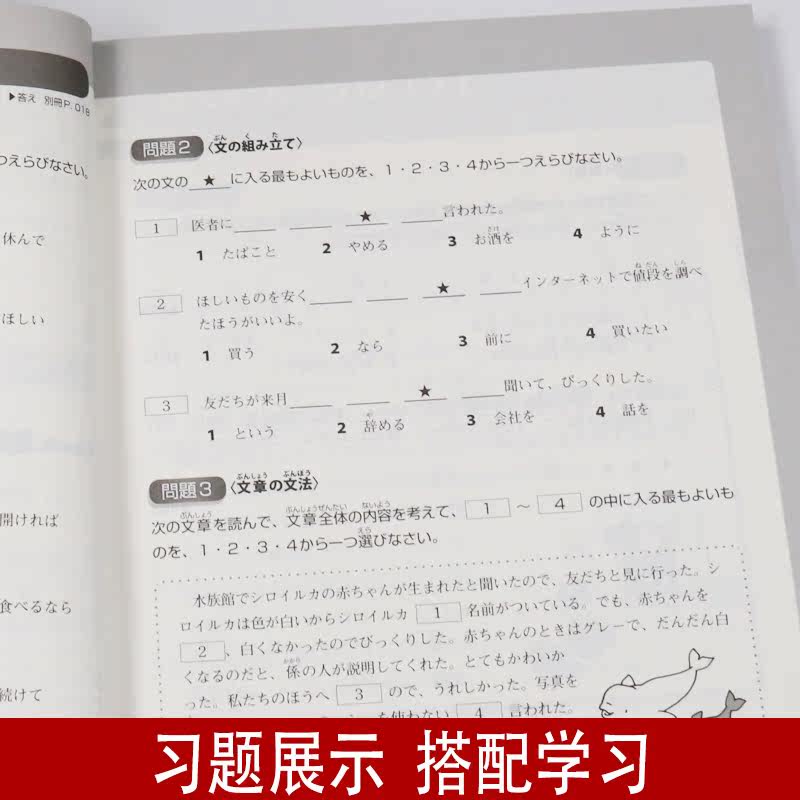 ▶答え 別冊P.018
つえらびなさい。
休んで
ほしい
開ければ
食べるなら
続けて
問題2 〈文の組み立て〉
ぶん く た
次の文の ★ に入る最もよいものを、1・2・3・4から一つえらびなさい。
1 医者に____ ____ ★ ____言われた。
1 たばこと 2 やめる 3 お酒を 4 ように
さけ
2 ほしいものを安く____ ____ ★ ____インターネットで値段を調べ
ねだん しら
たほうがいいよ。
1 買う 2 なら 3 前に 4 買いたい
3 友だちが来月____ ____ ★ ____聞いて、びっくりした。
1 という 2 辞める 3 会社を 4 話を
や
問題3 〈文章の文法〉
ぶんしょう ぶんぽう
次の文章を読んで、文章全体の内容を考えて、 1 ～ 4 の中に入る最もよいも
ぶんしょう ぶんしょうぜんたい ないよう
のを、1・2・3・4から一つ選びなさい。
えら
水族館でシロイルカの赤ちゃんが生まれたと聞いたので、友だちと見に行った。シ
ロイルカは色が白いからシロイルカ 1 名前がついている。でも、赤ちゃんを
2 、白くなかったのでびっくりした。赤ちゃんのときはグレーで、だんだん白
くなるのだと、係の人が説明してくれた。とてもかわいか
かかり
った。私たちのほうへ 3 ので、うれしかった。写真を
を使わない 4 言われた。
习题展示 搭配学习